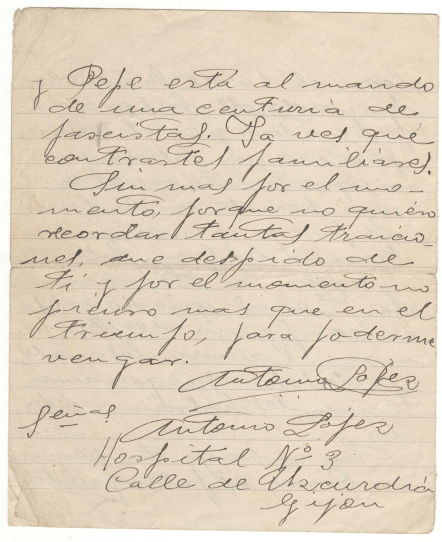 y Pepe está al mando
de una centuria de
fascistas. Ya ves que
contrastes familiares.
Sin mas por el mo-
mento, porque no quiero
recordar tantas traicio-
nes, me despido de
ti y por el momento no
pienso mas que en el
triunfo, para poderme
vengar.
Antonio López
Señas
Antonio López
Hospital Nº 3
Calle de Uzcurdia
Gijon